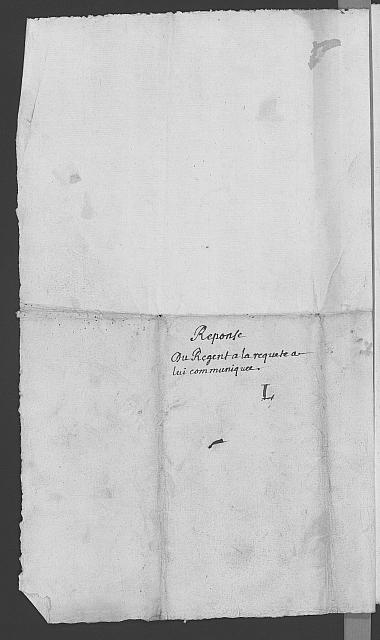 Reponse
Du Regent a la requete a
lui communiquee.
L